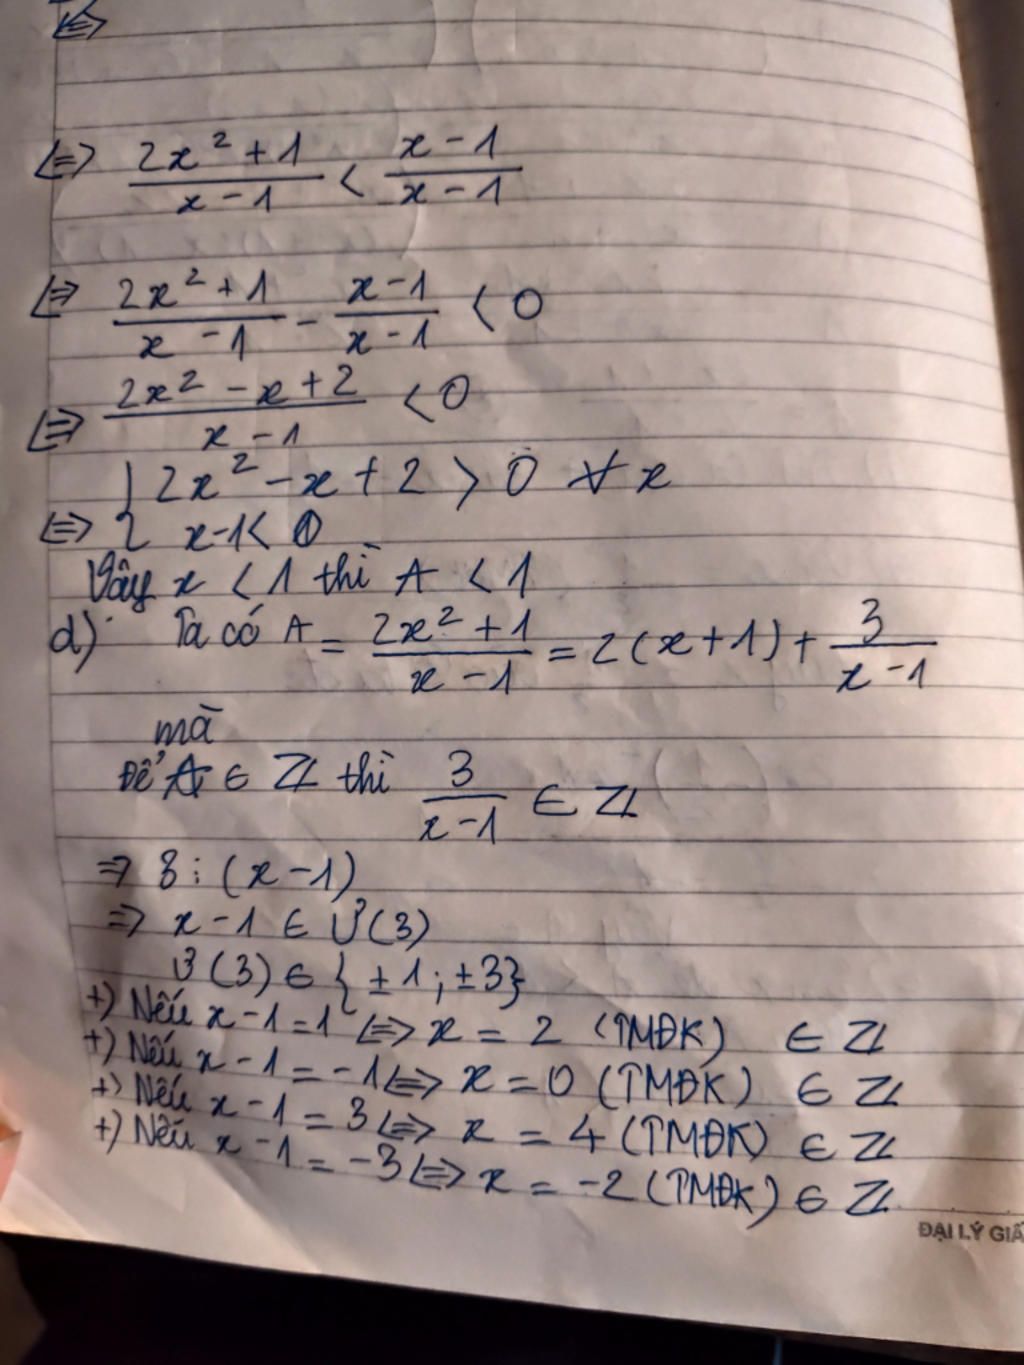 <=>
<=> (2x² + 1)/(x - 1) < (x - 1)/(x - 1)
<=> (2x² + 1)/(x - 1) - (x - 1)/(x - 1) < 0
<=> (2x² - x + 2)/(x - 1) < 0
<=> { 2x² - x + 2 > 0 ∀ x
x - 1 < 0
Vậy x < 1 thì A < 1
d) Ta có A = (2x² + 1)/(x - 1) = 2(x + 1) + 3/(x - 1)
mà
Để A ∈ ℤ thì 3/(x - 1) ∈ ℤ
=> 3 ⋮ (x - 1)
=> x - 1 ∈ Ư(3)
Ư(3) ∈ { ±1 ; ±3}
+) Nếu x - 1 = 1 <=> x = 2 (TMĐK) ∈ ℤ
+) Nếu x - 1 = -1 <=> x = 0 (TMĐK) ∈ ℤ
+) Nếu x - 1 = 3 <=> x = 4 (TMĐK) ∈ ℤ
+) Nếu x - 1 = -3 <=> x = -2 (TMĐK) ∈ ℤ
ĐẠI LÝ GIẤ